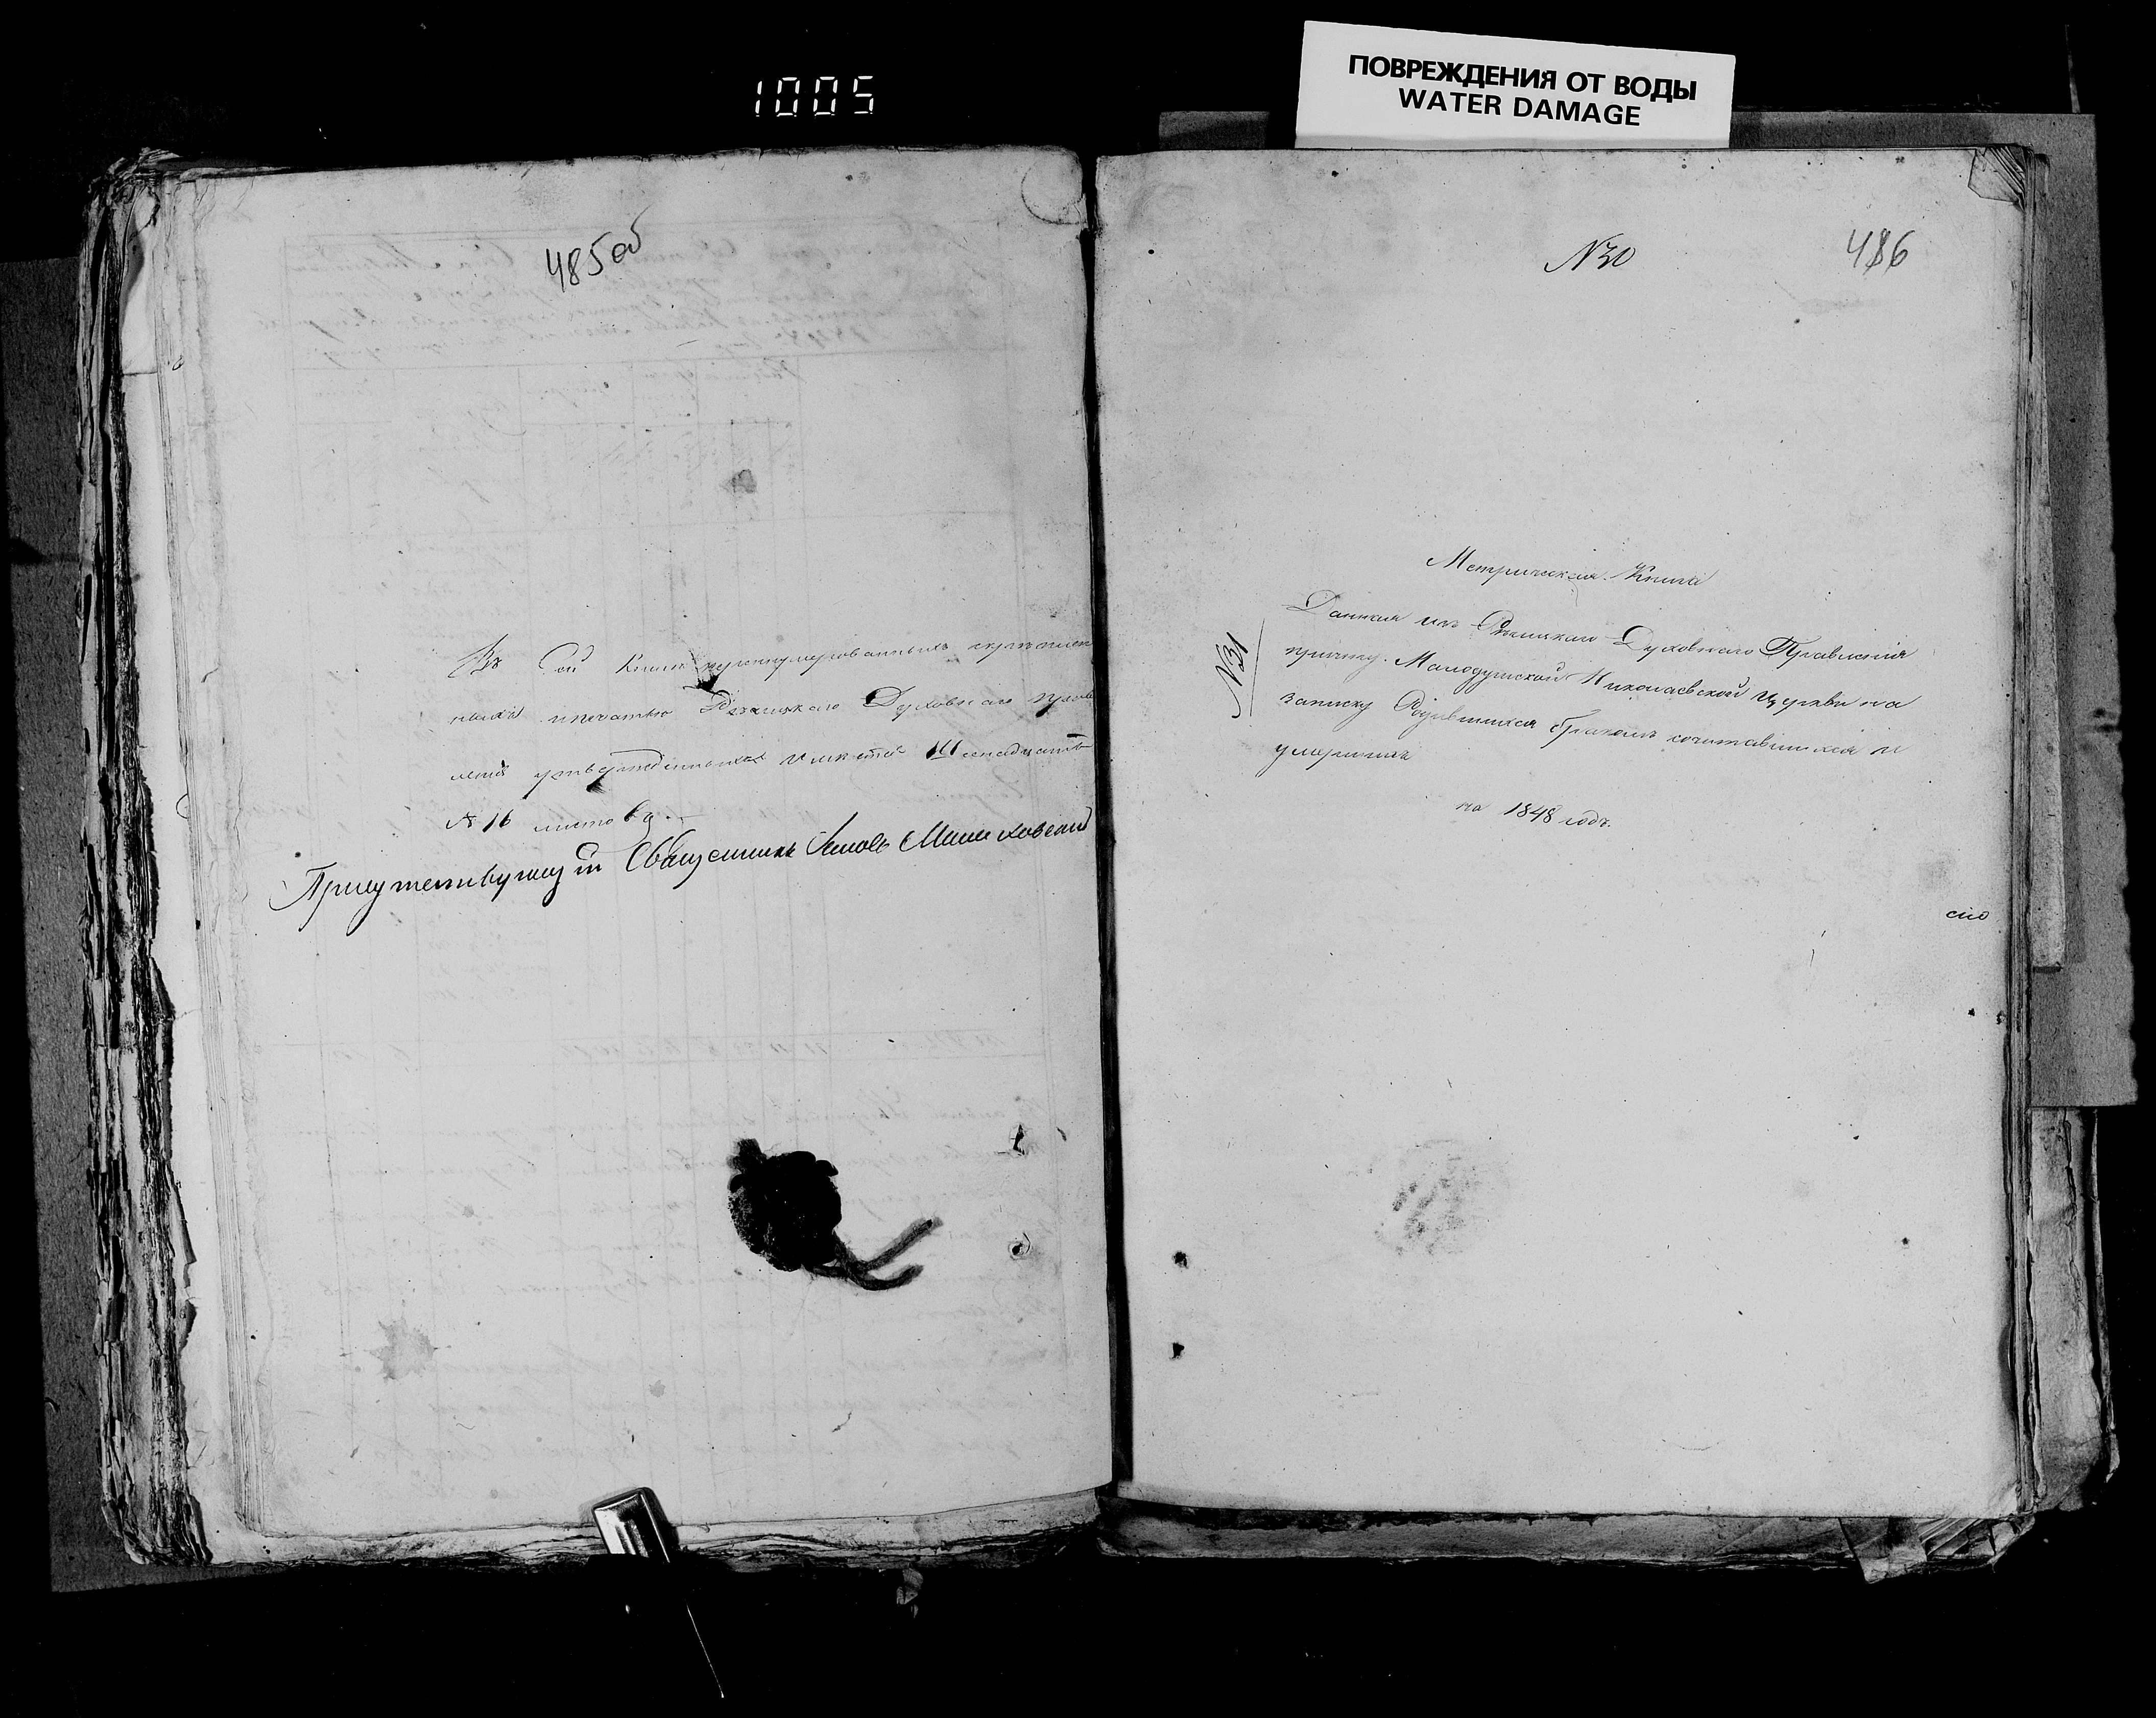 1005
ПОВРЕЖДЕНИЯ ОТ ВОДЫ
WATER DAMAGE
485об
Въ Сей Книгѣ нумерованныхъ скрѣплен
ныхъ печатью Рѣчицкаго Духовнаго Правле
нія утвержденныхъ
№ 16 листовъ
Присутствующій Священникъ
№30
486
Метрическая Книга
Данная изъ Рѣчицкаго Духовнаго Правленія
№31
причту Малодушской Николаевской Церкви на
записку Родившихся бракомъ сочетавшихся и
умершихъ
на 1848 годъ.
сію